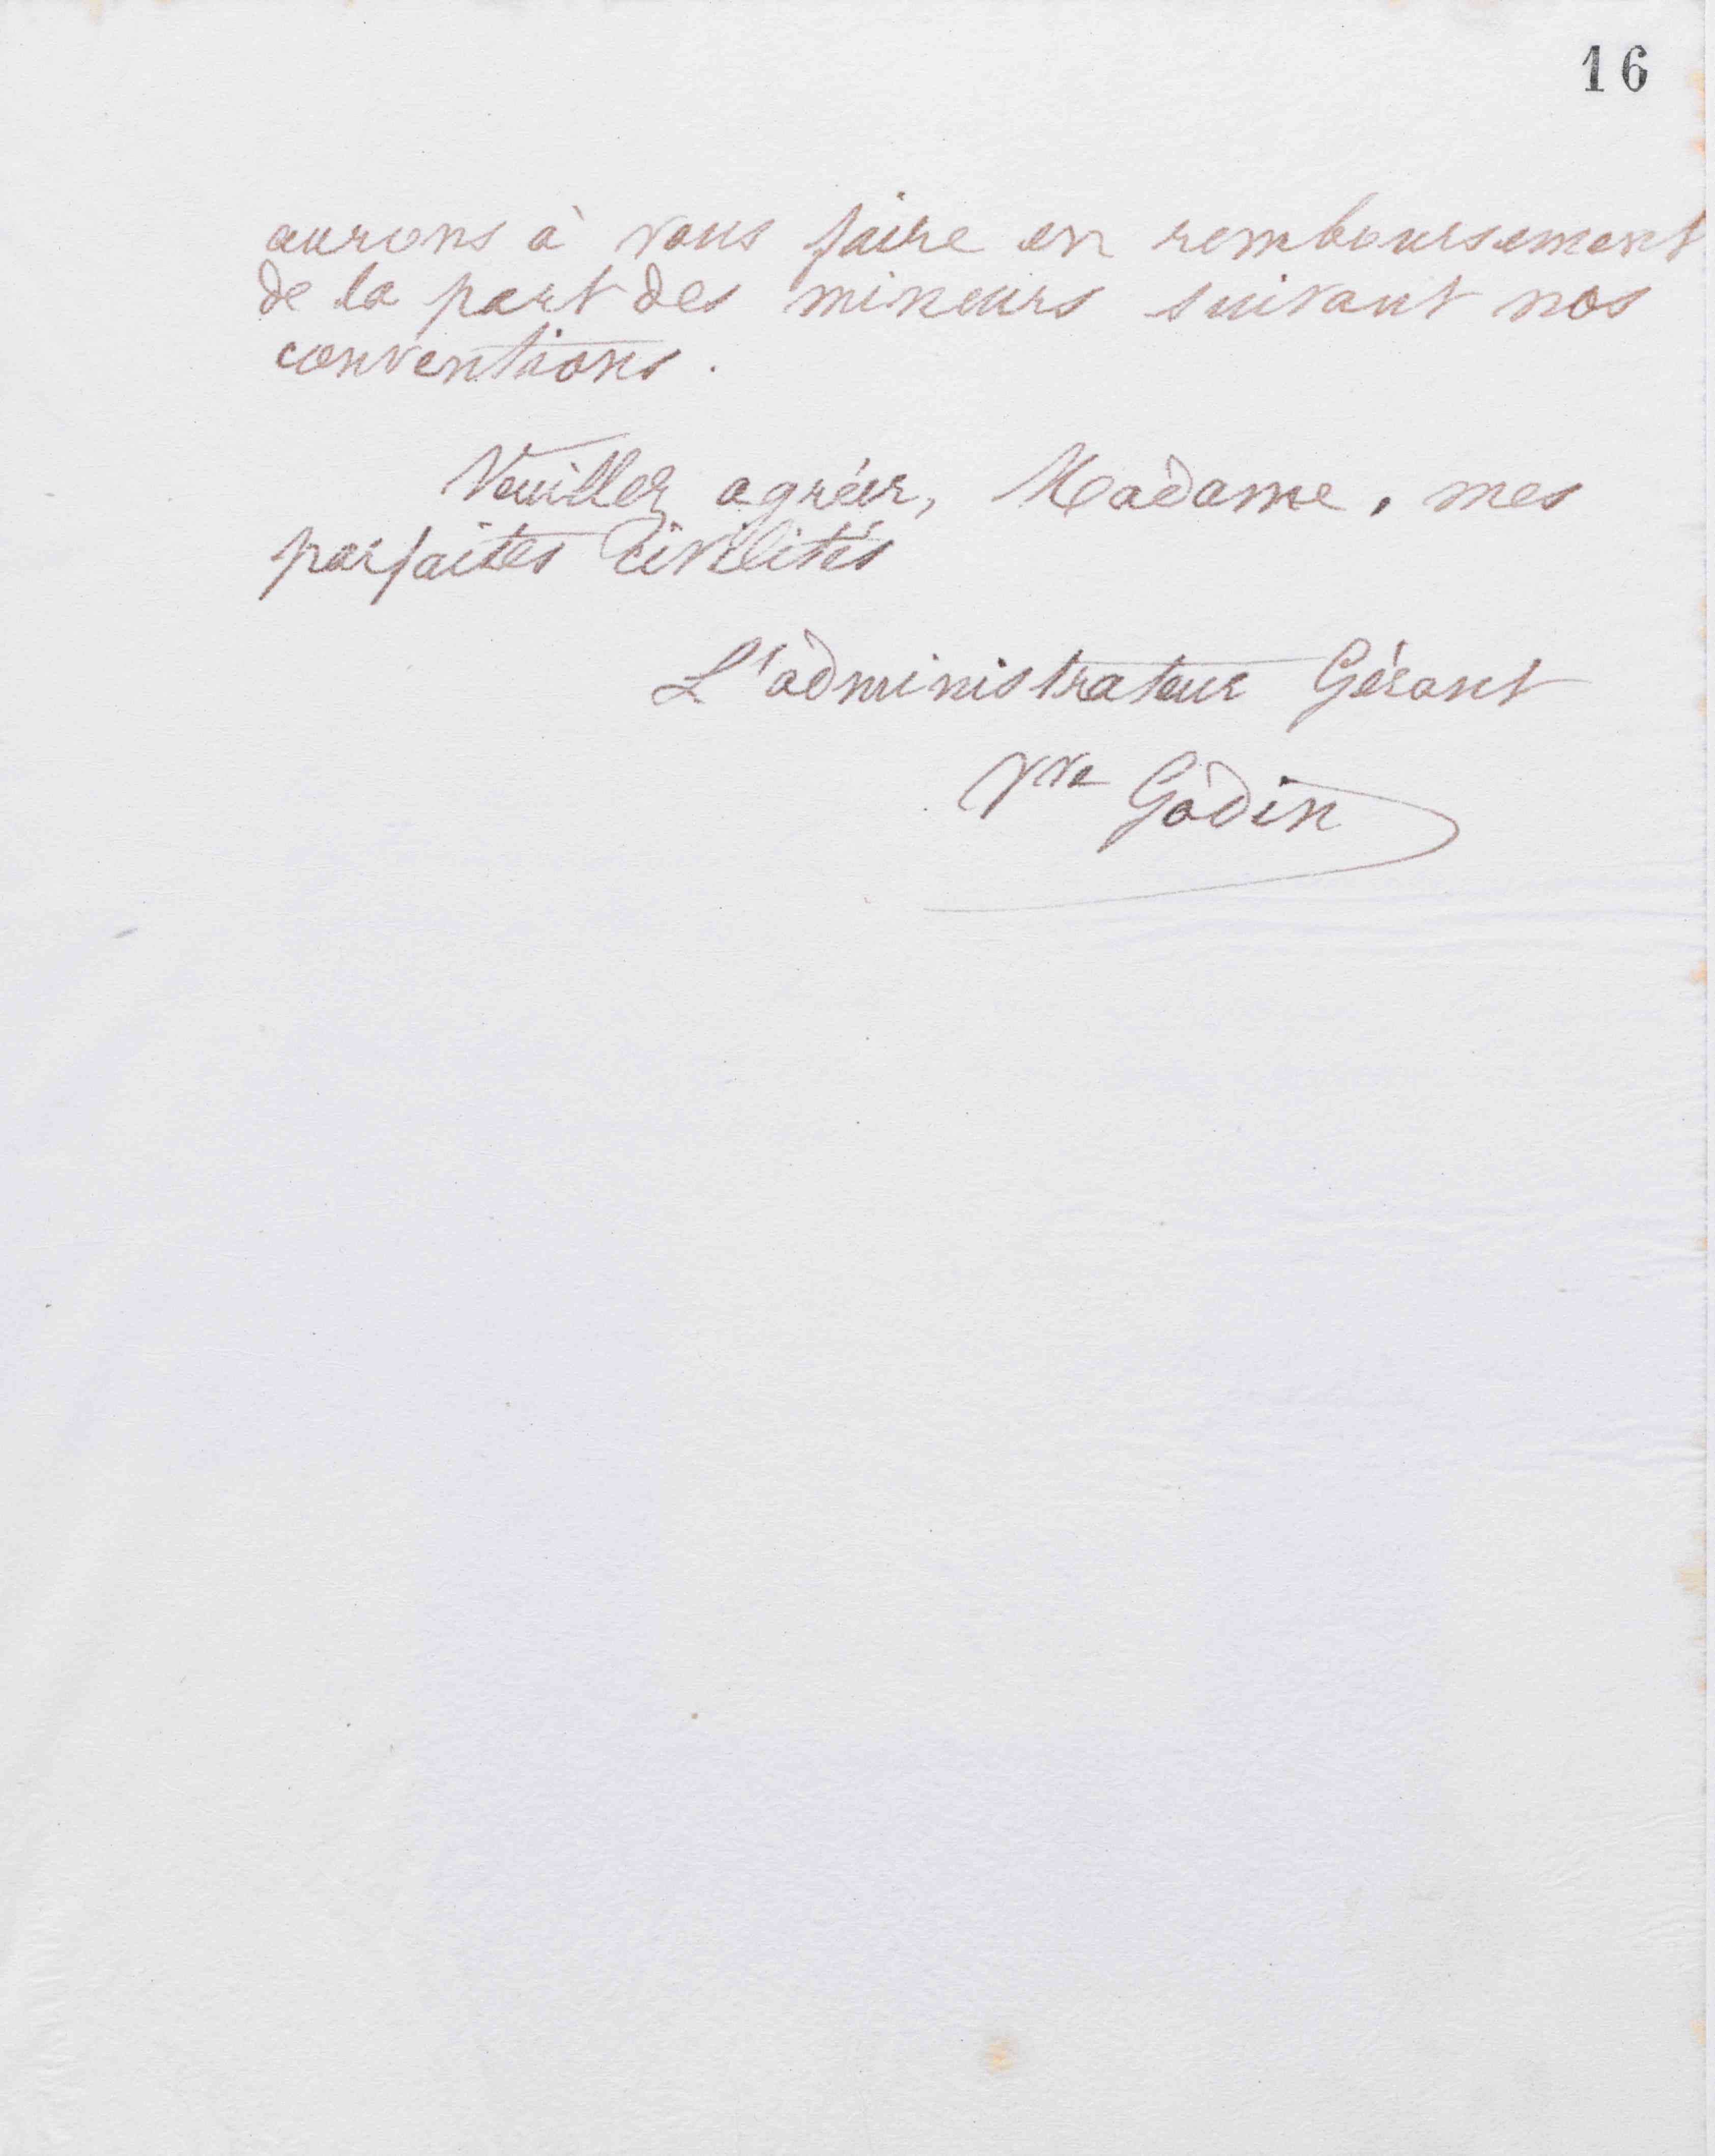 16
aurons à vous faire en remboursement
de la part des mineurs suivant nos
conventions.
Veuillez agréer, Madame, mes
parfaites civilités
L'administrateur Gérant
Vve Godin